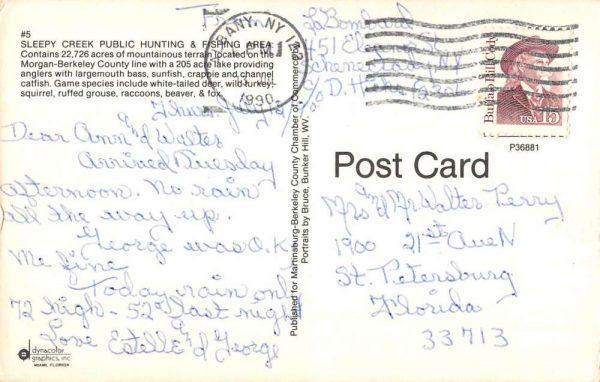 #5
SLEEPY CREEK PUBLIC HUNTING & FISHING AREA
Contains 22,726 acres of mountainous terrain located on the
Morgan-Berkeley County line with a 205 acre lake providing
anglers with largemouth bass, sunfish, crappie and channel
catfish. Game species include white-tailed deer, wild turkey,
squirrel, ruffed grouse, raccoons, beaver, & fox.
Dear Ann and Walter
Arrived Tuesday
afternoon. No rain
all the way up.
George was O.K.
me fine
Today rain only
72 high - 52° last night
Love Estelle and George
dynacolor
graphics, inc.
MIAMI, FLORIDA
Published for Martinsburg-Berkeley County Chamber of Commerce by
Portraits by Bruce, Bunker Hill, WV.
From
LaBombard
451
Schenectady, NY
ALBANY, NY 122
PM
1990
Buffalo Bill Cody
USA 15
P36881
Post Card
Mrs and Mr Walter Perry
1900 21st Ave N
St. Petersburg
Florida
33713